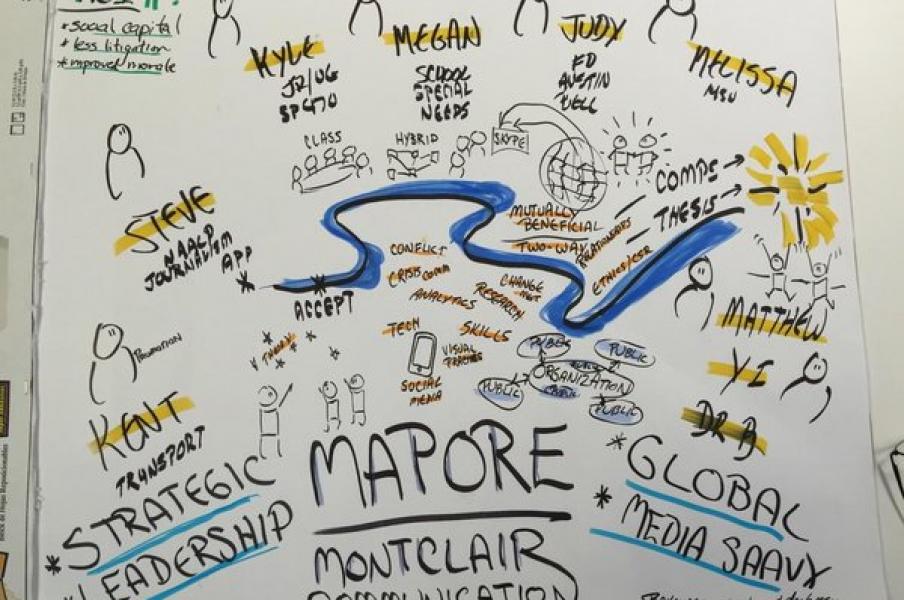 *social capital
*less litigation
*improved morale
KYLE
MEGAN
SCHOOL
SPECIAL
NEEDS
JUDY
ED
AUSTIN
MELISSA
MSU
CLASS
HYBRID
SKYPE
COMPS →
THESIS →
STEVE
JOURNALISM
APP
ACCEPT
MUTUALLY
BENEFICIAL
TWO-WAY
RELATIONSHIPS
ETHICS/CSR
CONFLICT
CRISIS COMM
ANALYTICS
CHANGE
RESEARCH
TECH
SKILLS
VISUAL
SOCIAL
MEDIA
PUBLIC
PUBLIC
ORGANIZATION
PUBLIC
PUBLIC
PUBLIC
MATTHEW
YI
DR B
PROMOTION
KENT
TRANSPORT
*STRATEGIC
LEADERSHIP
MAPORE
MONTCLAIR
COMMUNICATION
* GLOBAL
* MEDIA SAAVY